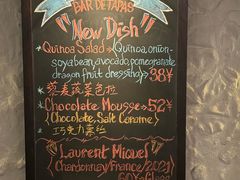 BAR DE TAPAS
"New Dish"
Quinoa Salad → (Quinoa, onion-
soyabean, avocado, pomegranate
dragon fruit dressing) 38¥
藜麦蔬菜色拉
Chocolate Mousse → 52¥
(Chocolate, Salt Carame)
巧克力慕丝
Laurent Miquel
Chardonnay/France/2021